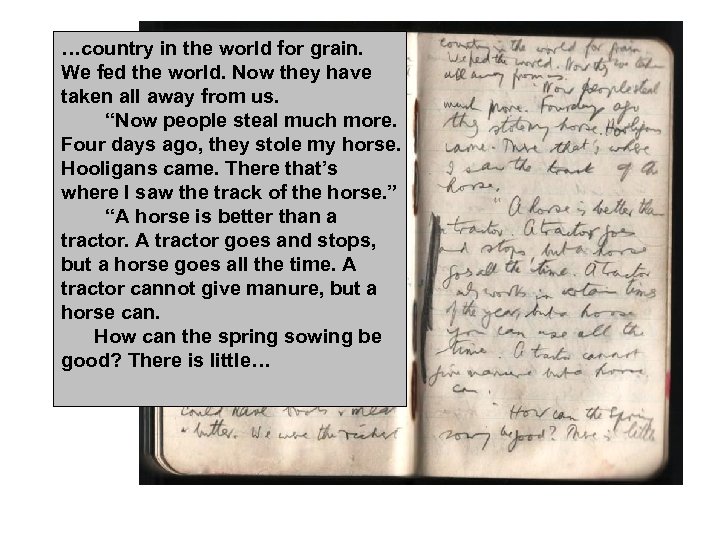 …country in the world for grain.
We fed the world. Now they have
taken all away from us.
“Now people steal much more.
Four days ago, they stole my horse.
Hooligans came. There that’s
where I saw the track of the horse.”
“A horse is better than a
tractor. A tractor goes and stops,
but a horse goes all the time. A
tractor cannot give manure, but a
horse can.
How can the spring sowing be
good? There is little…
could have boots & meat
& butter. We were the richest
country in the world for grain.
We fed the world. Now they have taken
all away from us.
"Now people steal
much more. Four days ago
they stole my horse. Hooligans
came. There that's where
I saw the track of a
horse.
"A horse is better than
a tractor. A tractor goes
and stops, but a horse
goes all the time. A tractor
only works in certain times
of the year, but a horse
you can use all the
time. A tractor cannot
give manure but a horse
can.
"How can the spring
sowing be good? There is little